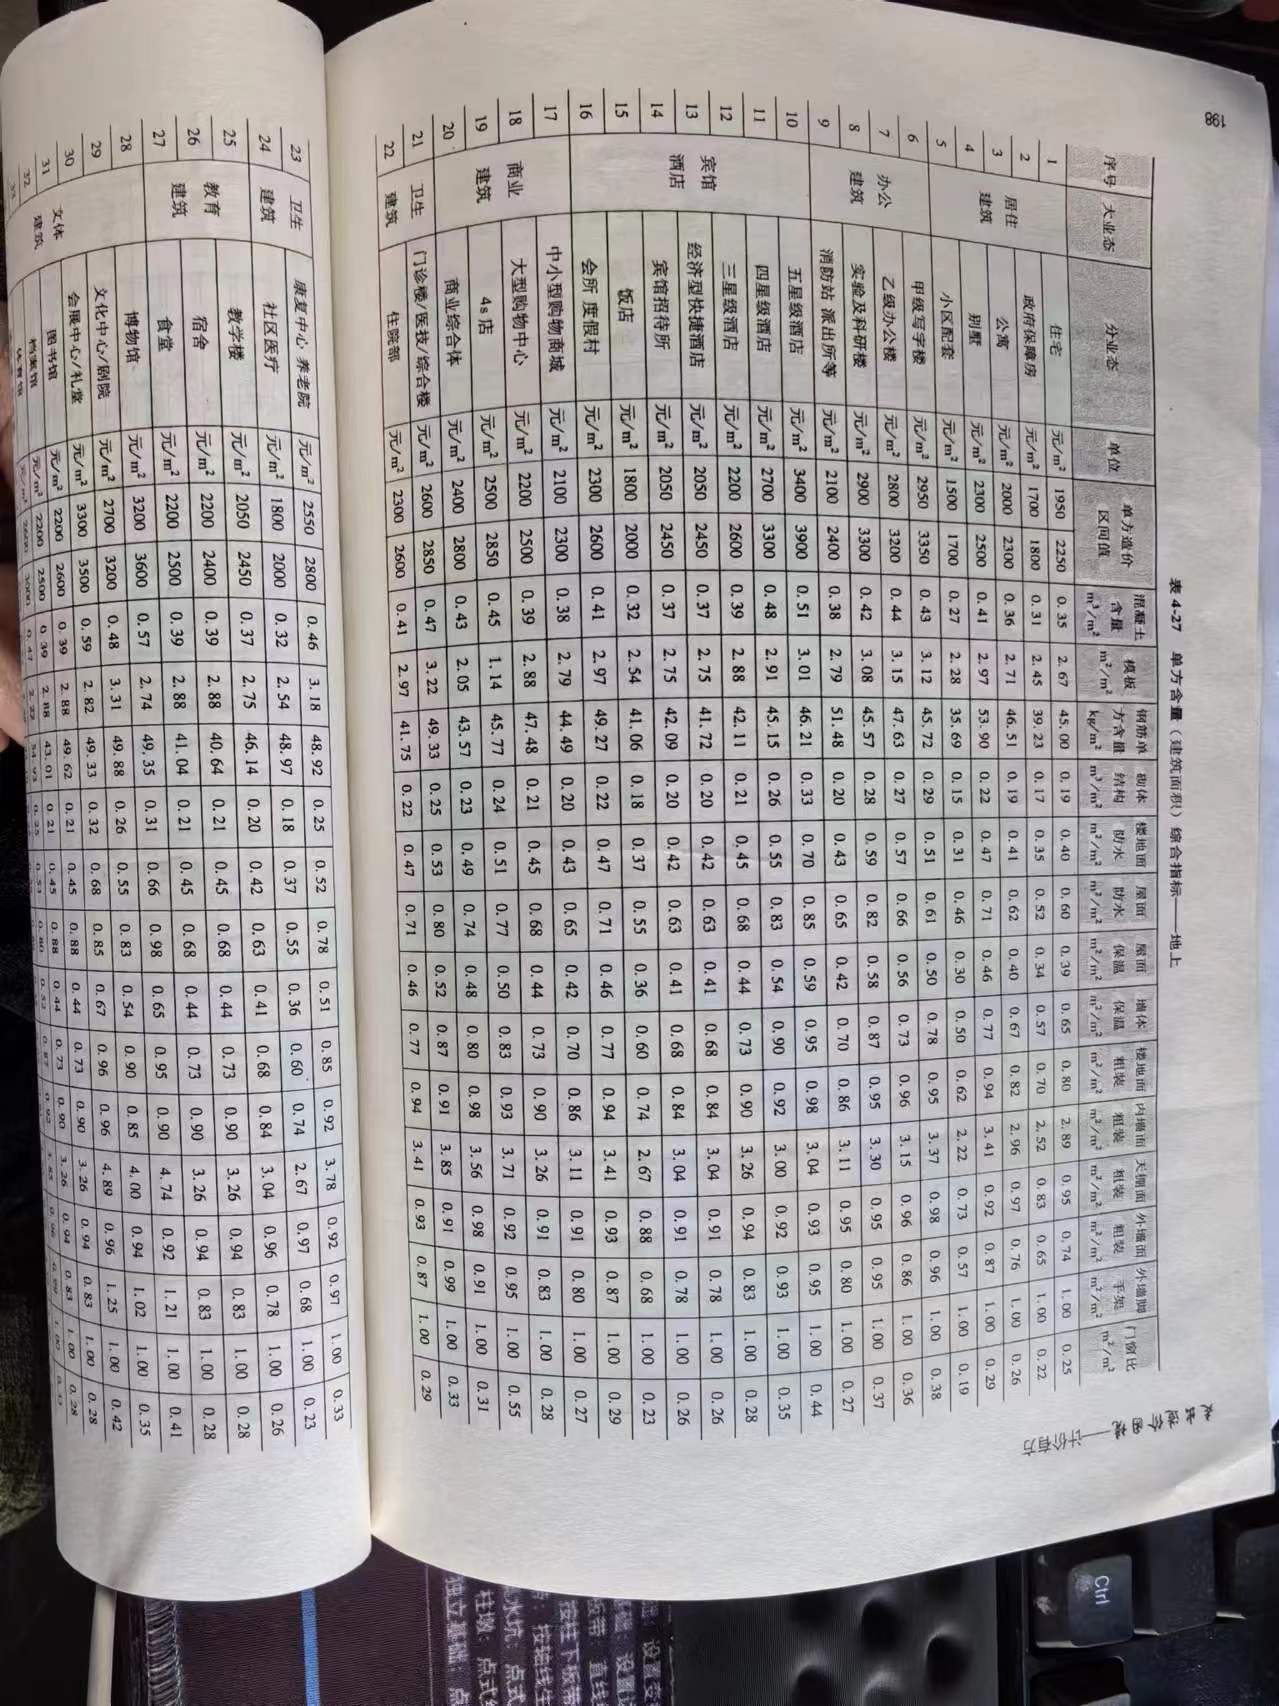 198
计价有方
表 4-27 单方含量（建筑面积）综合指标——地上
序号 大业态 分业态 单位 单方造价区间值 混凝土含量 m³/m² 模板 m²/m² 钢筋单方含量 kg/m² 砌体结构 m³/m² 楼地面防水 m²/m² 屋面防水 m²/m² 屋面保温 m²/m² 墙体保温 m²/m² 楼地面粗装 m²/m² 内墙面粗装 m²/m² 天棚面粗装 m²/m² 外墙面粗装 m²/m² 外墙脚手架 m²/m² 门窗比 m²/m²
居住建筑
1 住宅 元/m² 1950 2250 0.35 2.67 45.00 0.19 0.40 0.60 0.39 0.65 0.80 2.89 0.95 0.74 1.00 0.25
2 政府保障房 元/m² 1700 1800 0.31 2.45 39.23 0.17 0.35 0.52 0.34 0.57 0.70 2.52 0.83 0.65 1.00 0.22
3 公寓 元/m² 2000 2300 0.36 2.71 46.51 0.19 0.41 0.62 0.40 0.67 0.82 2.96 0.97 0.76 1.00 0.26
4 别墅 元/m² 2300 2500 0.41 2.97 53.90 0.22 0.47 0.71 0.46 0.77 0.94 3.41 0.92 0.87 1.00 0.29
5 小区配套 元/m² 1500 1700 0.27 2.28 35.69 0.15 0.31 0.46 0.30 0.50 0.62 2.22 0.73 0.57 1.00 0.19
办公建筑
6 甲级写字楼 元/m² 2950 3350 0.43 3.12 45.72 0.29 0.51 0.61 0.50 0.78 0.95 3.37 0.98 0.96 1.00 0.38
7 乙级办公楼 元/m² 2800 3200 0.44 3.15 47.63 0.27 0.57 0.66 0.56 0.73 0.96 3.15 0.96 0.86 1.00 0.36
8 实验及科研楼 元/m² 2900 3300 0.42 3.08 45.57 0.28 0.59 0.82 0.58 0.87 0.95 3.30 0.95 0.95 1.00 0.37
9 消防站 派出所等 元/m² 2100 2400 0.38 2.79 51.48 0.20 0.43 0.65 0.42 0.70 0.86 3.11 0.95 0.80 1.00 0.27
宾馆酒店
10 五星级酒店 元/m² 3400 3900 0.51 3.01 46.21 0.33 0.70 0.85 0.59 0.95 0.98 3.04 0.93 0.95 1.00 0.44
11 四星级酒店 元/m² 2700 3300 0.48 2.91 45.15 0.26 0.55 0.83 0.54 0.90 0.92 3.00 0.92 0.93 1.00 0.35
12 三星级酒店 元/m² 2200 2600 0.39 2.88 42.11 0.21 0.45 0.68 0.44 0.73 0.90 3.26 0.94 0.83 1.00 0.28
13 经济型快捷酒店 元/m² 2050 2450 0.37 2.75 41.72 0.20 0.42 0.63 0.41 0.68 0.84 3.04 0.91 0.78 1.00 0.26
14 宾馆招待所 元/m² 2050 2450 0.37 2.75 42.09 0.20 0.42 0.63 0.41 0.68 0.84 3.04 0.91 0.78 1.00 0.26
15 饭店 元/m² 1800 2000 0.32 2.54 41.06 0.18 0.37 0.55 0.36 0.60 0.74 2.67 0.88 0.68 1.00 0.23
16 会所 度假村 元/m² 2300 2600 0.41 2.97 49.27 0.22 0.47 0.71 0.46 0.77 0.94 3.41 0.93 0.87 1.00 0.29
商业建筑
17 中小型购物商城 元/m² 2100 2300 0.38 2.79 44.49 0.20 0.43 0.65 0.42 0.70 0.86 3.11 0.91 0.80 1.00 0.27
18 大型购物中心 元/m² 2200 2500 0.39 2.88 47.48 0.21 0.45 0.68 0.44 0.73 0.90 3.26 0.91 0.83 1.00 0.28
19 4s 店 元/m² 2500 2850 0.45 1.14 45.77 0.24 0.51 0.77 0.50 0.83 0.93 3.71 0.92 0.95 1.00 0.55
20 商业综合体 元/m² 2400 2800 0.43 2.05 43.57 0.23 0.49 0.74 0.48 0.80 0.98 3.56 0.98 0.91 1.00 0.31
卫生建筑
21 门诊楼/医技/综合楼 元/m² 2600 2850 0.47 3.22 49.33 0.25 0.53 0.80 0.52 0.87 0.91 3.85 0.91 0.99 1.00 0.33
22 住院部 元/m² 2300 2600 0.41 2.97 41.75 0.22 0.47 0.71 0.46 0.77 0.94 3.41 0.93 0.87 1.00 0.29
卫生建筑
23 康复中心 养老院 元/m² 2550 2800 0.46 3.18 48.92 0.25 0.52 0.78 0.51 0.85 0.92 3.78 0.92 0.97 1.00 0.33
24 社区医疗 元/m² 1800 2000 0.32 2.54 48.97 0.18 0.37 0.55 0.36 0.60 0.74 2.67 0.97 0.68 1.00 0.23
教育建筑
25 教学楼 元/m² 2050 2450 0.37 2.75 46.14 0.20 0.42 0.63 0.41 0.68 0.84 3.04 0.96 0.78 1.00 0.26
26 宿舍 元/m² 2200 2400 0.39 2.88 40.64 0.21 0.45 0.68 0.44 0.73 0.90 3.26 0.94 0.83 1.00 0.28
27 食堂 元/m² 2200 2500 0.39 2.88 41.04 0.21 0.45 0.68 0.44 0.73 0.90 3.26 0.94 0.83 1.00 0.28
文体建筑
28 博物馆 元/m² 3200 3600 0.57 2.74 49.35 0.31 0.66 0.98 0.65 0.95 0.90 4.74 0.92 1.21 1.00 0.41
29 文化中心/剧院 元/m² 2700 3200 0.48 3.31 49.88 0.26 0.55 0.83 0.54 0.90 0.85 4.00 0.94 1.02 1.00 0.35
30 会展中心/礼堂 元/m² 3300 3500 0.59 2.82 49.33 0.32 0.68 0.85 0.67 0.96 0.96 4.89 0.96 1.25 1.00 0.42
31 图书馆 元/m² 2200 2600 0.39 2.88 49.62 0.21 0.45 0.88 0.44 0.73 0.90 3.26 0.94 0.83 1.00 0.28
32 档案馆 元/m² 2200 2500 0.39 2.88 43.01 0.21 0.45 0.88 0.44 0.73 0.90 3.26 0.94 0.83 1.00 0.28
33 体育馆
Ctrl
按柱下板带
水坑：点式
柱墩：点式
独立基础：点